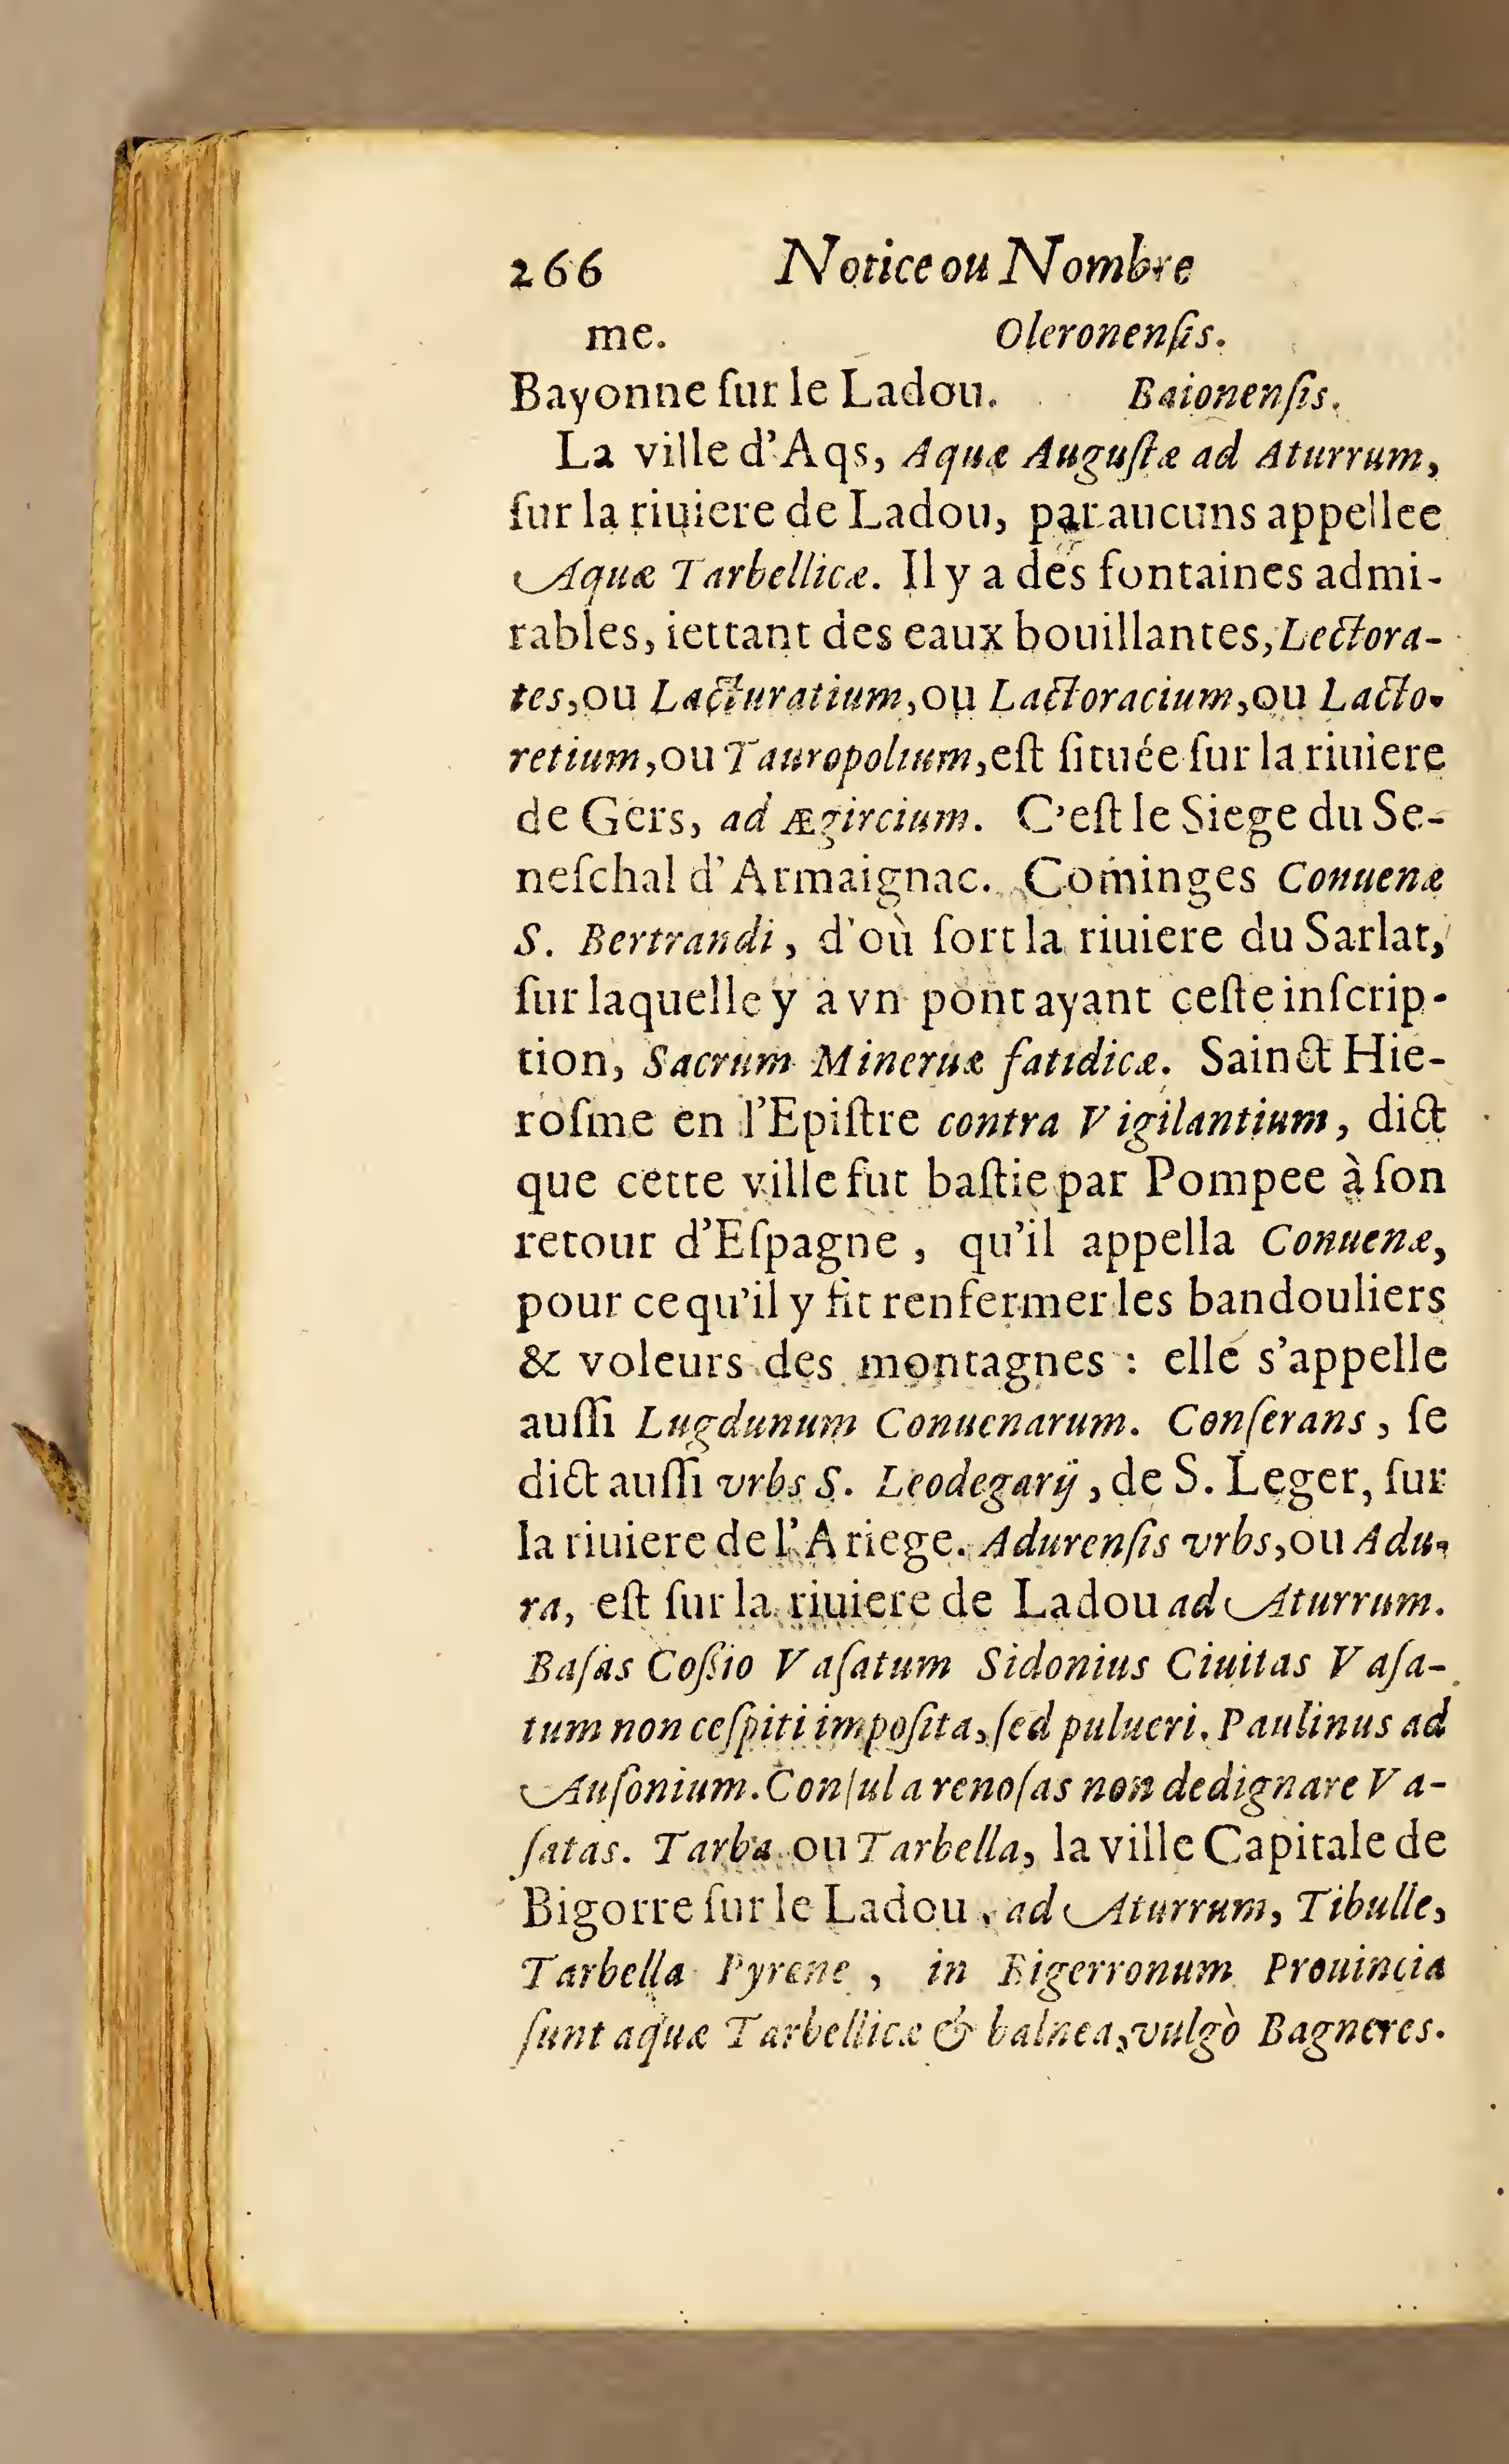 266 Notice ou Nombre
me. Oleronenſis.
Bayonne ſur le Ladou. Baionenſis.
La ville d'Aqs, Aquæ Auguſtæ ad Aturrum,
ſur la riuiere de Ladou, par aucuns appellee
Aquæ Tarbellicæ. Il y a des fontaines admi-
rables, iettant des eaux bouillantes, Lectora-
tes, ou Lacturatium, ou Lactoracium, ou Lacto-
retium, ou Tauropolium, eſt ſituée ſur la riuiere
de Gers, ad Ægircium. C'eſt le Siege du Se-
neſchal d'Armaignac. Cominges Conuenæ
S. Bertrandi, d'où ſort la riuiere du Sarlat,
ſur laquelle y a vn pont ayant ceſte inſcrip-
tion, Sacrum Mineruæ fatidicæ. Sainct Hie-
roſme en l'Epiſtre contra Vigilantium, dict
que cette ville fut baſtie par Pompee à ſon
retour d'Eſpagne, qu'il appella Conuenæ,
pour ce qu'il y fit renfermer les bandouliers
& voleurs des montagnes : elle s'appelle
auſſi Lugdunum Conuenarum. Conſerans, ſe
dict auſſi vrbs S. Leodegarij, de S. Leger, ſur
la riuiere de l'Ariege. Adurenſis vrbs, ou Adu-
ra, eſt ſur la riuiere de Ladou ad Aturrum.
Baſas Coſsio Vaſatum Sidonius Ciuitas Vaſa-
tum non ceſpiti impoſita, ſed pulueri. Paulinus ad
Auſonium. Conſul arenoſas non dedignare Va-
ſatas. Tarba ou Tarbella, la ville Capitale de
Bigorre ſur le Ladou, ad Aturrum, Tibulle,
Tarbella Pyrene, in Bigerronum Prouincia
ſunt aquæ Tarbellicæ & balnea, vulgò Bagneres.